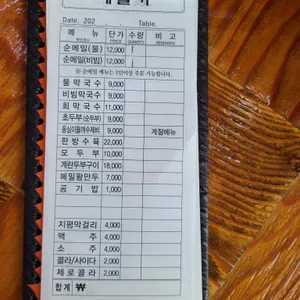 Date, 202 . . . Table.
메 뉴 단가 수량 비 고
MENU PRICE QUANTITY REMARKS
순메밀(물) 12,000
순메밀(비빔) 12,000
※ 순메밀 메뉴는 2인이상 주문 가능합니다.
물 막 국 수 9,000
비빔막국수 9,000
회 막 국 수 11,000
초두부(순두부) 9,000
옹심이들깨수제비 9,000 계절메뉴
한 방 수 육 22,000
모 두 부 10,000
계란두부구이 18,000
메밀왕만두 7,000
공 기 밥 1,000
지평막걸리 4,000
맥 주 4,000
소 주 4,000
콜라/사이다 2,000
제로콜라 2,000
합계 ₩